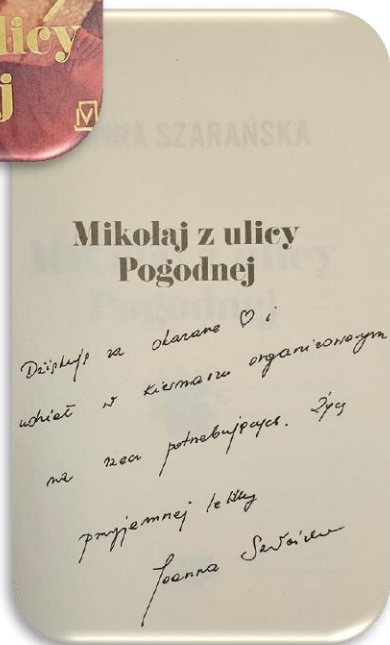 licy
j
NNA SZARAŃSKA
Mikołaj z ulicy
Pogodnej
Dziękuję za okazane ♡ i
udział w kiermaszu organizowanym
na rzecz potrzebujących. Życzę
przyjemnej lektury
Joanna